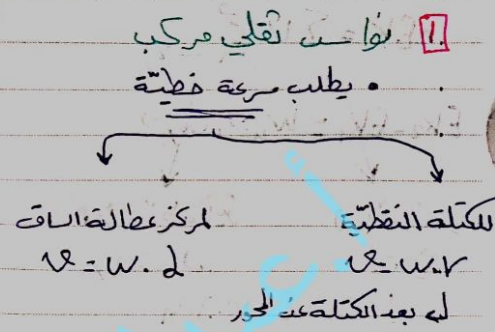 1. نواس ثقلي مركب
• يطلب سرعة خطيّة
للكتلة النقطيّة
v = w.r
لمركز عطالة الساق
v = w.d
بعد الكتلة عن المحور